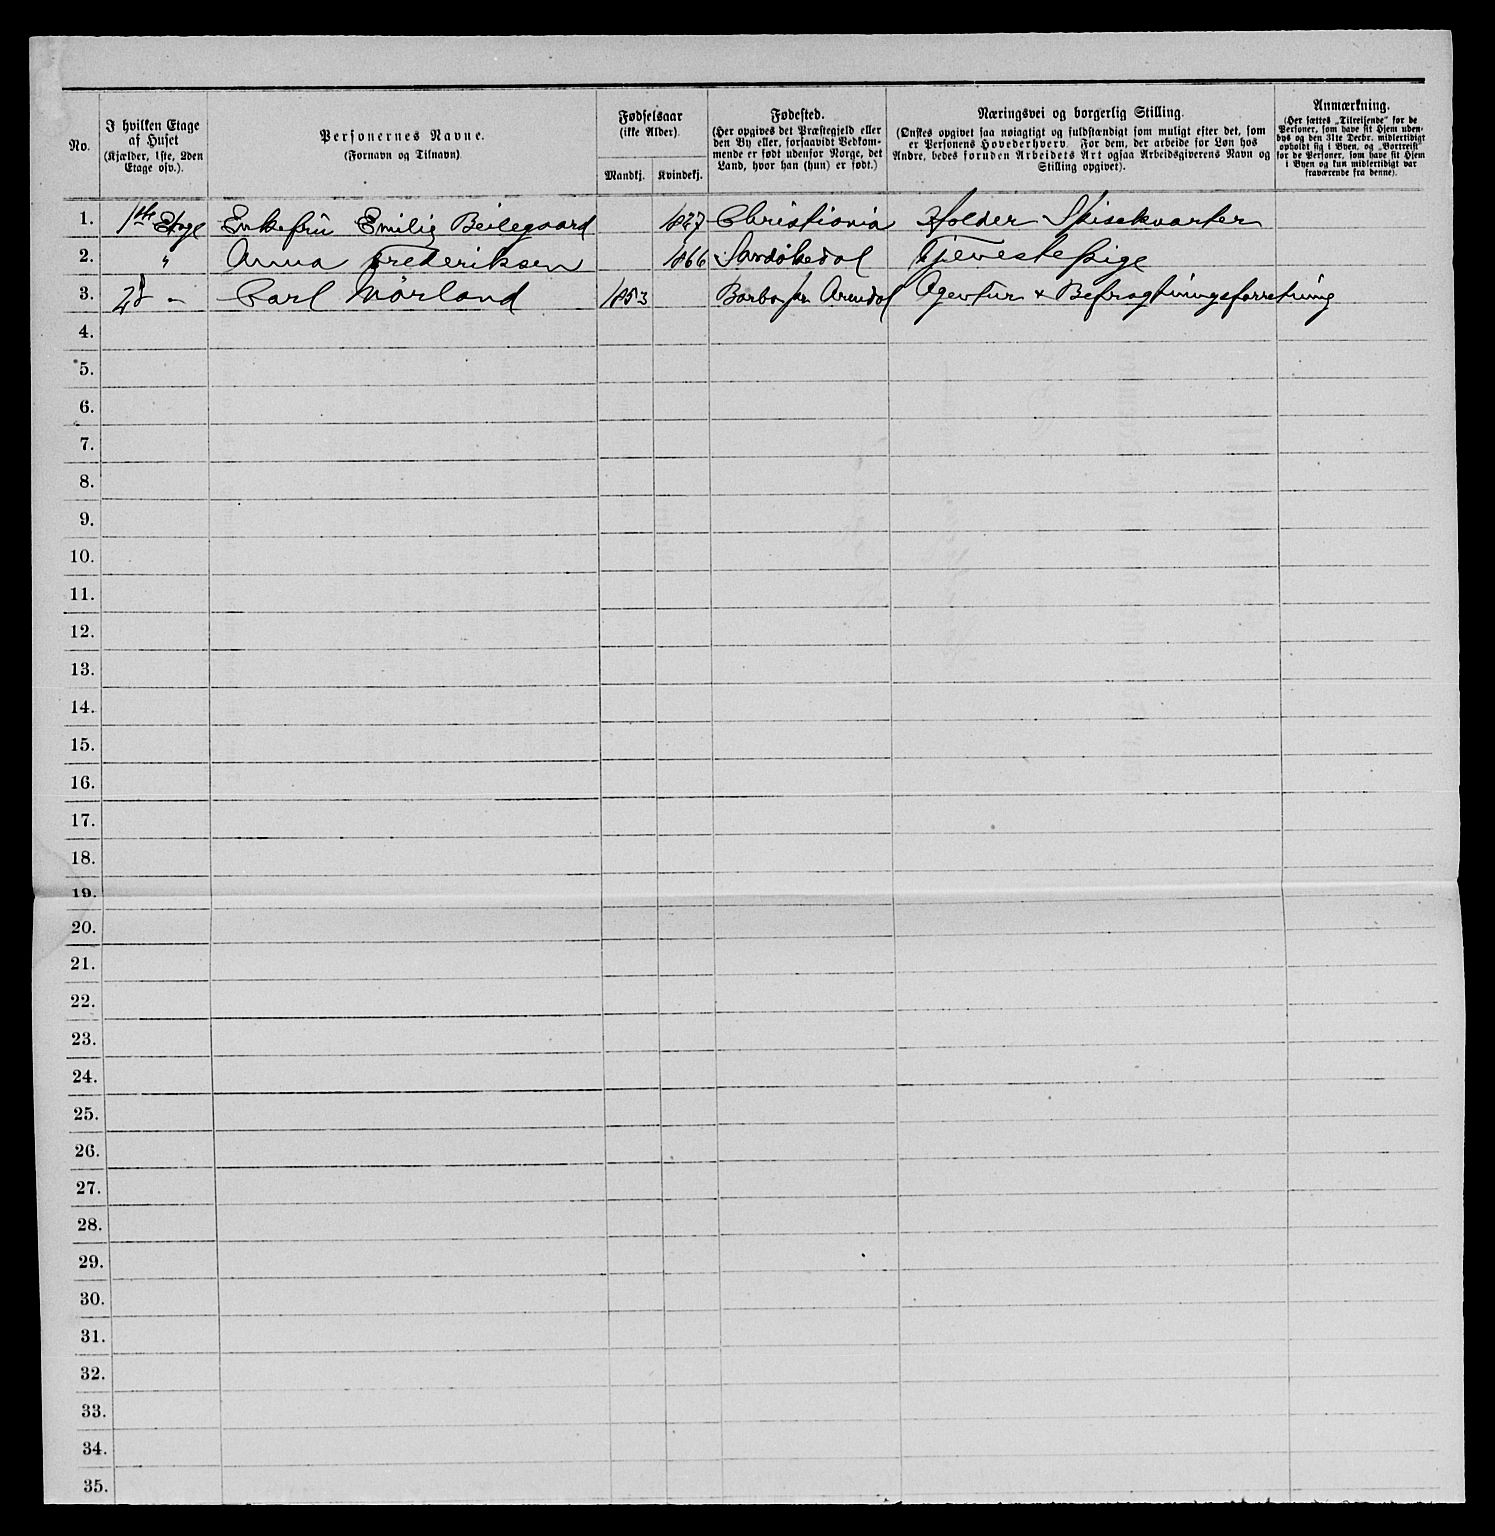 No.
I hvilken Etage
af Huset
(Kjælder, 1ste, 2den
Etage osv.).
Personernes Navne.
(Fornavn og Tilnavn)
Fødselsaar
(ikke Alder).
Mandkj.
Kvindekj.
Fødested.
(Her opgives det Præstegjeld eller
den By eller, forsaavidt Bedkom-
mende er født udenfor Norge, det
Land, hvor han (hun) er født.)
Næringsvei og borgerlig Stilling.
(Ønskes opgivet saa nøiagtigt og fuldstændigt som muligt efter det, som
er Personens Hovederhverv. For dem, der arbeide for Løn hos
Andre, bedes foruden Arbeidets Art ogsaa Arbeidsgiverens Navn og
Stilling opgivet).
Anmærkning.
(Her sættes „Tilreisende" for de
Personer, som have sit Hjem uden-
bys og den 31te Decbr. midlertidigt
opholdt sig i Byen, og „Bortreist"
for de Personer, som have sit Hjem
i Byen og kun midlertidigt var
fraværende fra denne).
1. 1ste Etage Enkefru Emilie Beilegaard 1827 Christiania Holder Spisekvarter
2. " Anna Frederiksen 1866 Sandøkedal Tjenestepige
3. 2d - Carl Mørland 1853 Barbo pr Arendal Agentur & Befragtningsforretning
4.
5.
6.
7.
8.
9.
10.
11.
12.
13.
14.
15.
16.
17.
18.
19.
20.
21.
22.
23.
24.
25.
26.
27.
28.
29.
30.
31.
32.
33.
34.
35.